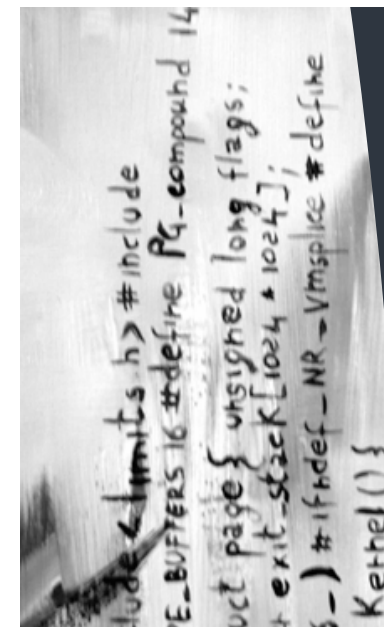 lude <limits.h> #include
PE_BUFFERS 16 #define PG_compound 14
uct page { unsigned long flags;
exit_stack[1024 * 1024];
_) #ifndef _NR_vmsplice #define
Kernel() {